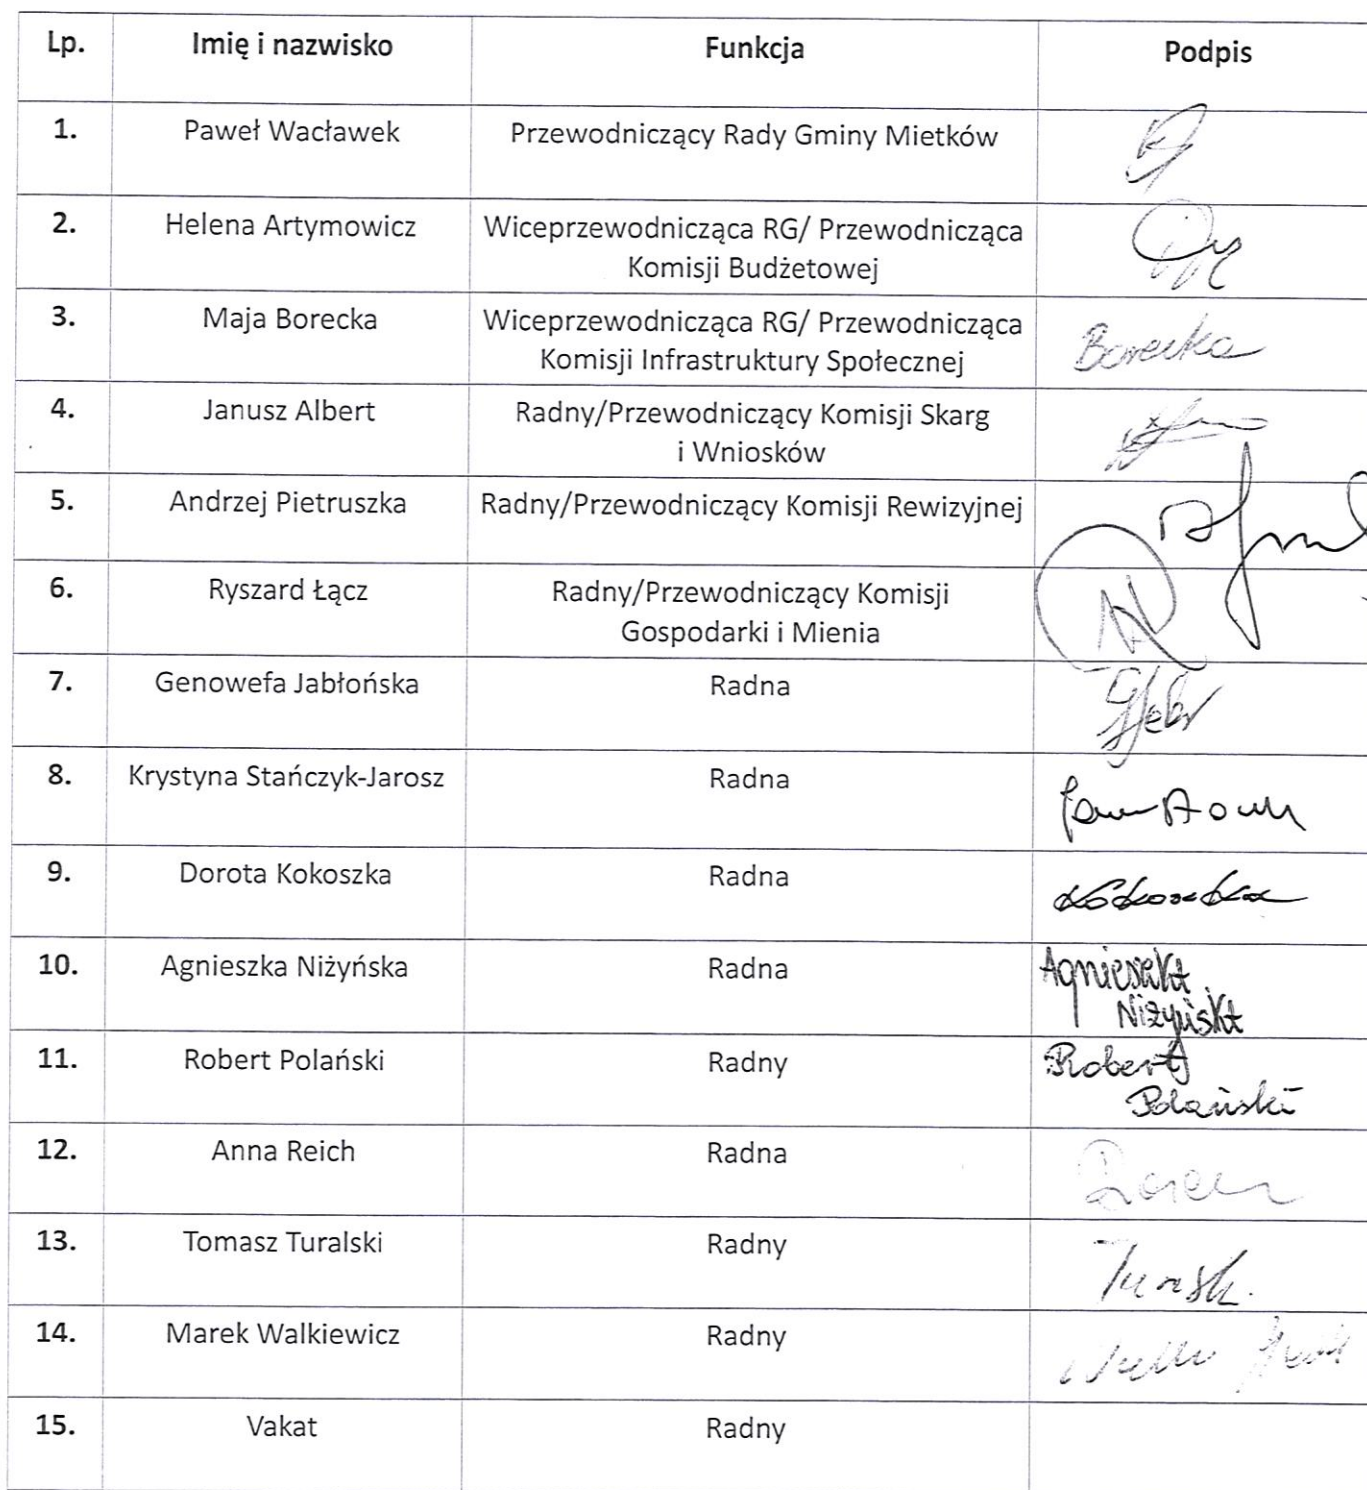 Lp. Imię i nazwisko Funkcja Podpis
1. Paweł Wacławek Przewodniczący Rady Gminy Mietków
2. Helena Artymowicz Wiceprzewodnicząca RG/ Przewodnicząca
Komisji Budżetowej
3. Maja Borecka Wiceprzewodnicząca RG/ Przewodnicząca
Komisji Infrastruktury Społecznej
Borecka
4. Janusz Albert Radny/Przewodniczący Komisji Skarg
i Wniosków
5. Andrzej Pietruszka Radny/Przewodniczący Komisji Rewizyjnej
6. Ryszard Łącz Radny/Przewodniczący Komisji
Gospodarki i Mienia
7. Genowefa Jabłońska Radna
8. Krystyna Stańczyk-Jarosz Radna
9. Dorota Kokoszka Radna
10. Agnieszka Niżyńska Radna Agnieszka
Niżyńska
11. Robert Polański Radny Robert
Polański
12. Anna Reich Radna
13. Tomasz Turalski Radny
14. Marek Walkiewicz Radny
15. Vakat Radny